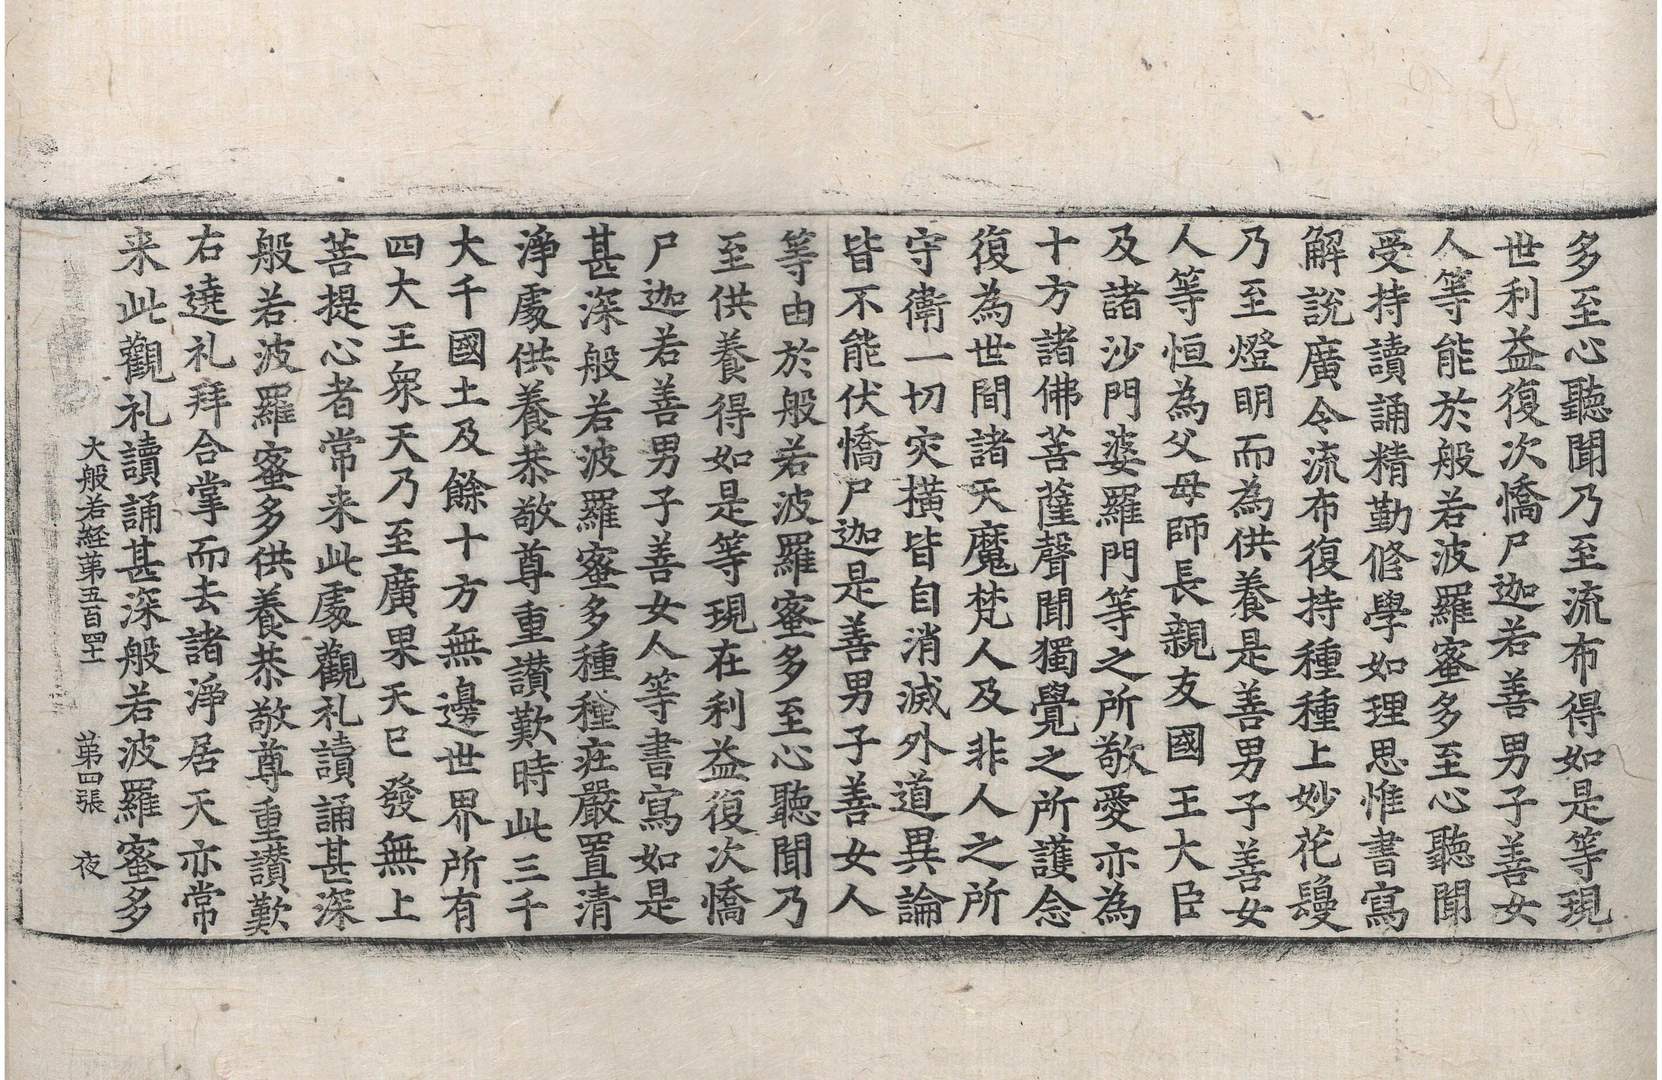 多至心聽聞乃至流布得如是等現
世利益復次憍尸迦若善男子善女
人等能於般若波羅蜜多至心聽聞
受持讀誦精勤修學如理思惟書寫
解說廣令流布復持種種上妙花鬘
乃至燈明而為供養是善男子善女
人等恒為父母師長親友國王大臣
及諸沙門婆羅門等之所敬愛亦為
十方諸佛菩薩聲聞獨覺之所護念
復為世間諸天魔梵人及非人之所
守衛一切灾橫皆自消滅外道異論
皆不能伏憍尸迦是善男子善女人
等由於般若波羅蜜多至心聽聞乃
至供養得如是等現在利益復次憍
尸迦若善男子善女人等書寫如是
甚深般若波羅蜜多種種莊嚴置清
淨處供養恭敬尊重讚歎時此三千
大千國土及餘十方無邊世界所有
四大王眾天乃至廣果天已發無上
菩提心者常来此處觀礼讀誦甚深
般若波羅蜜多供養恭敬尊重讚歎
右遶礼拜合掌而去諸淨居天亦常
来此觀礼讀誦甚深般若波羅蜜多
大般若経第五百四十一 第四張 夜